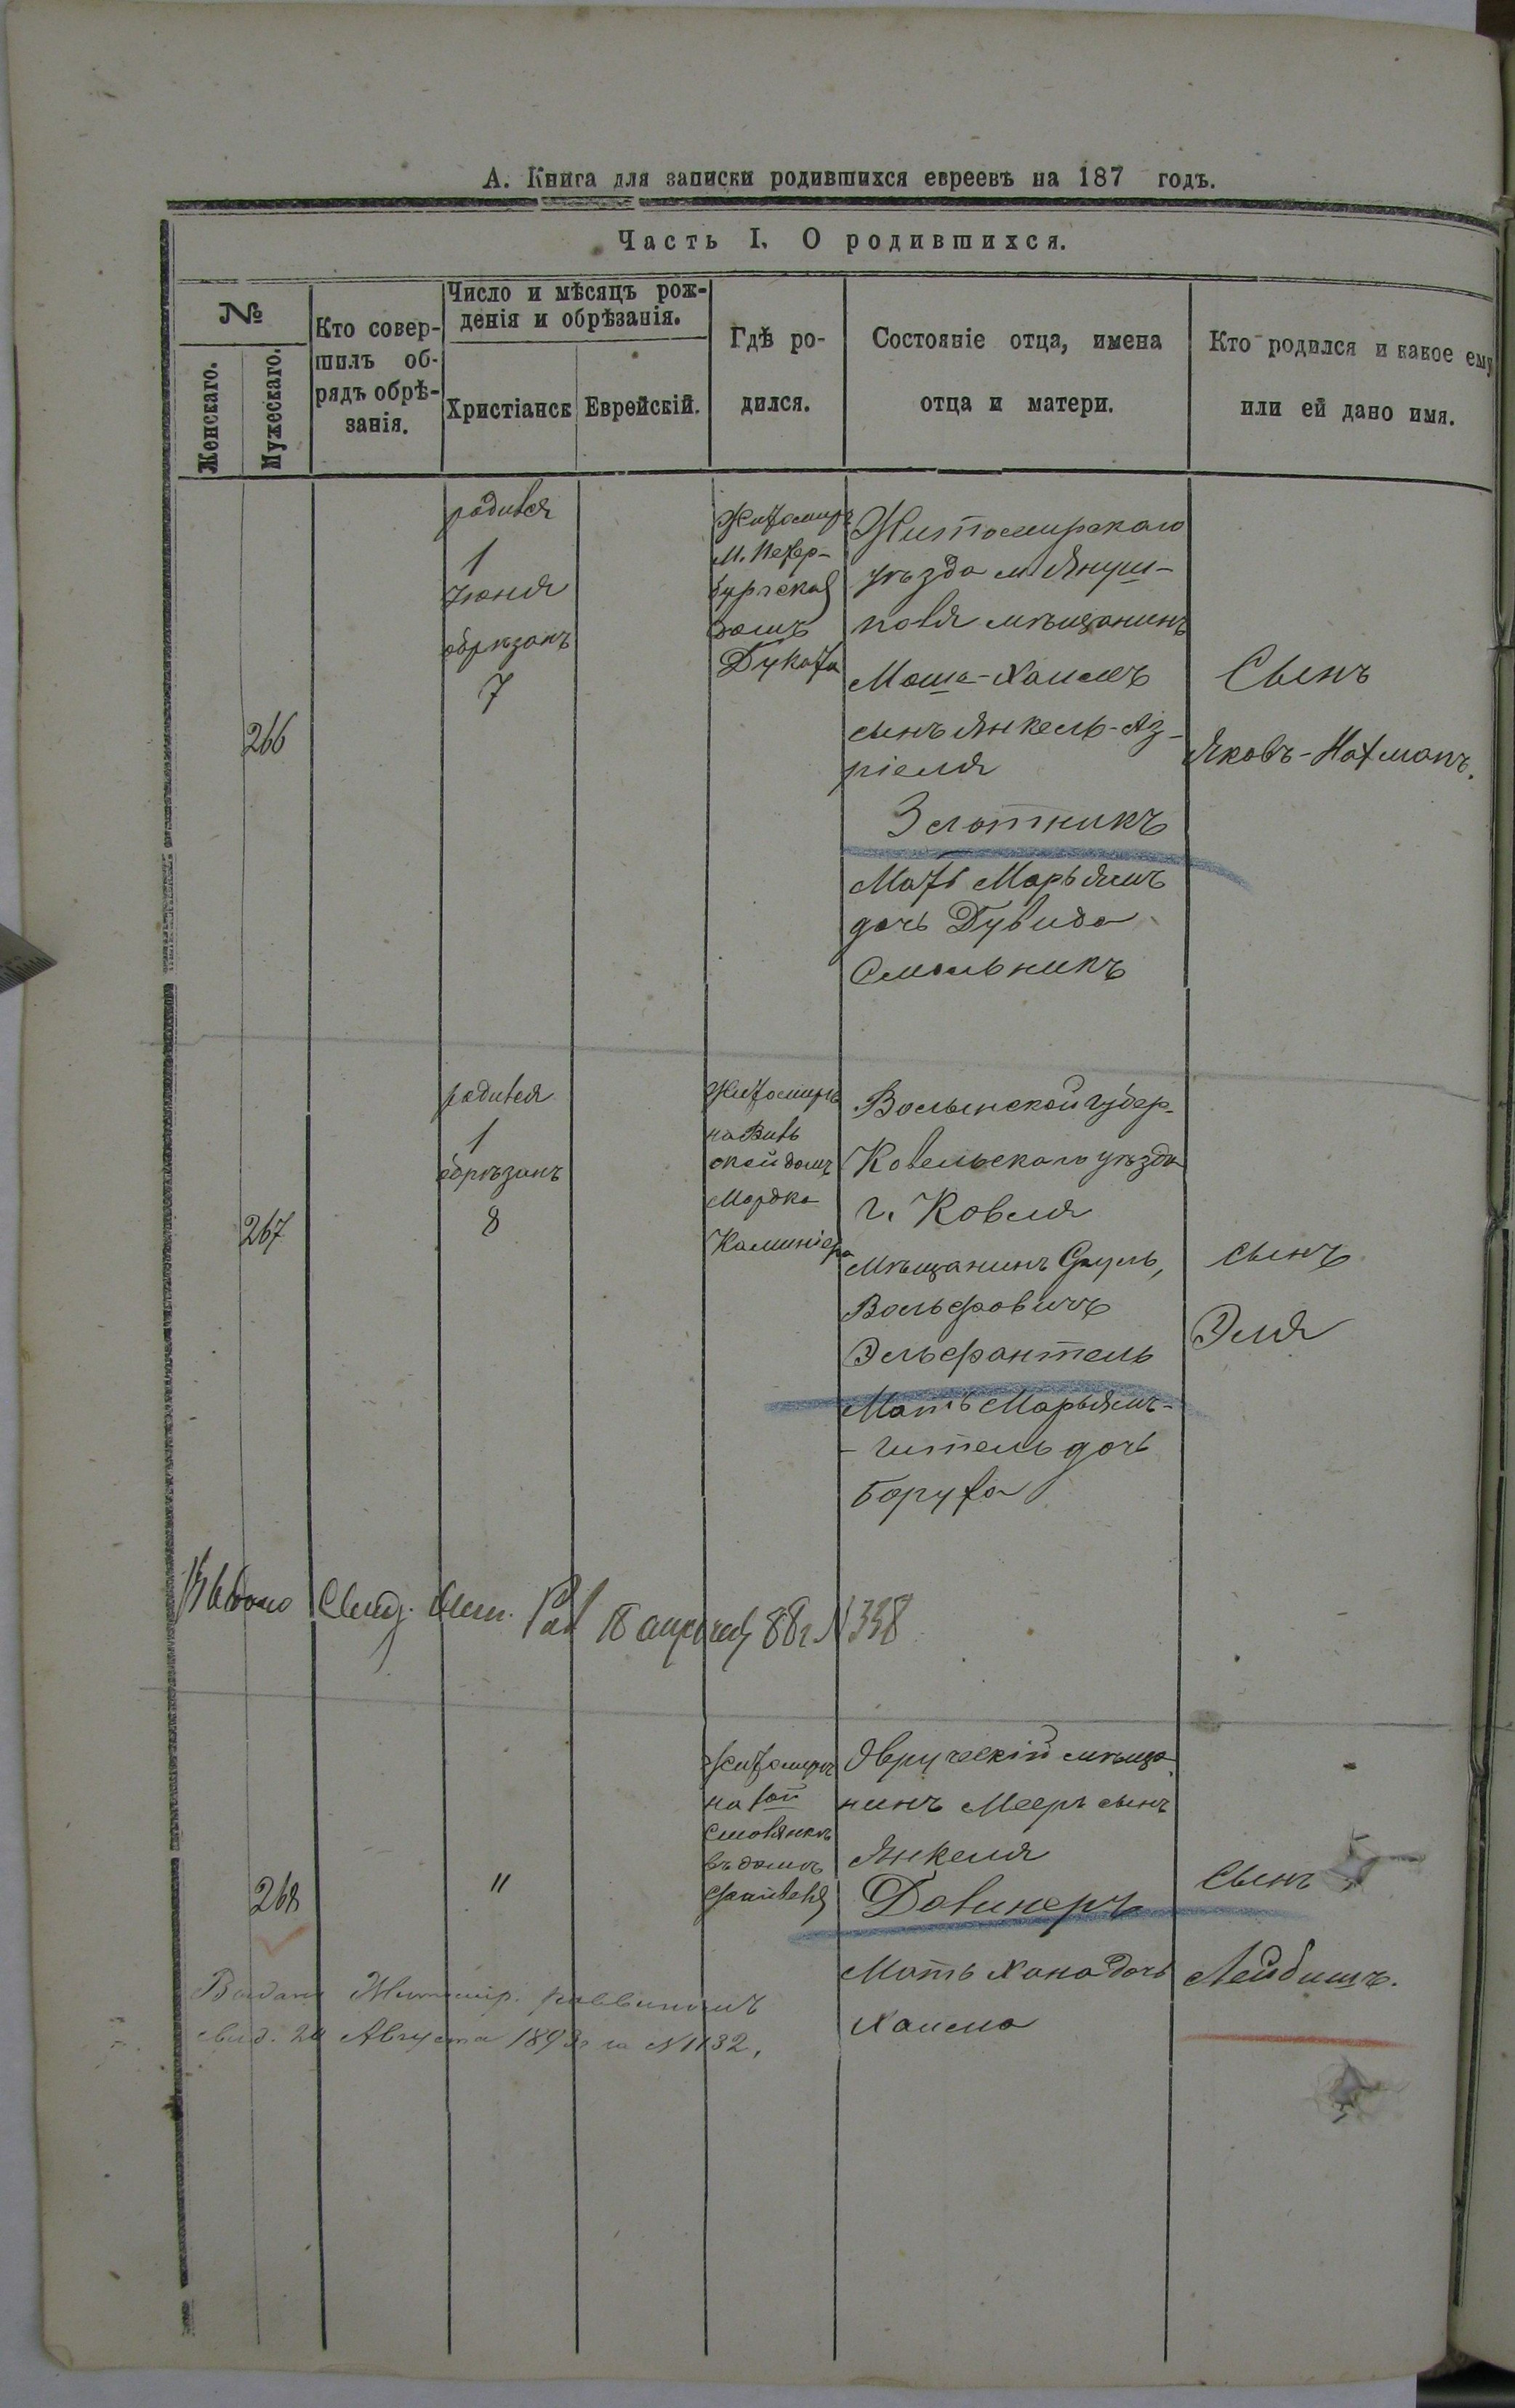 А. Книга для записки родившихся евреевъ на 187 годъ.
Часть I. О родившихся.
№
Женскаго.
Мужескаго.
Кто совер-
шилъ об-
рядъ обрѣ-
занія.
Число и мѣсяцъ рож-
денія и обрѣзанія.
Христіанск
Еврейскій.
Гдѣ ро-
дился.
Состояніе отца, имена
отца и матери.
Кто родился и какое ему
или ей дано имя.
266
родился
1
Іюня
обрѣзанъ
7
Житомиръ
М. Петер-
бургская
домъ
Духата
Житомирскаго
уѣзда м. Януш-
поля мѣщанинъ
Моше-Хаимъ
сынъ Янкель-Аз-
ріеля
Злотникъ
Мать Марьямъ
дочь Дувида
Смольникъ
Сынъ
Яковъ-Нахманъ.
267
родился
1
обрѣзанъ
8
Житомиръ
на Виль
ской домъ
Мордка
Волынской губер-
Ковельскаго уѣзда
г. Ковля
мѣщанинъ Сруль,
Вольфовичъ
Эльфантель
Мать Марьямъ-
- Гитель дочь
Боруха
сынъ
Эля
Свид. 18 апрѣля 88 г. N 338
268
"
Житомиръ
на
въ домѣ
Овручскій мѣща-
нинъ Мееръ сынъ
Янкеля
Довинеръ
Мать Хана дочь
Хаима
сынъ
Лейбишъ.
Выдано Житомир. раввиномъ
свид. 20 Августа 1893 г. за N 1132.